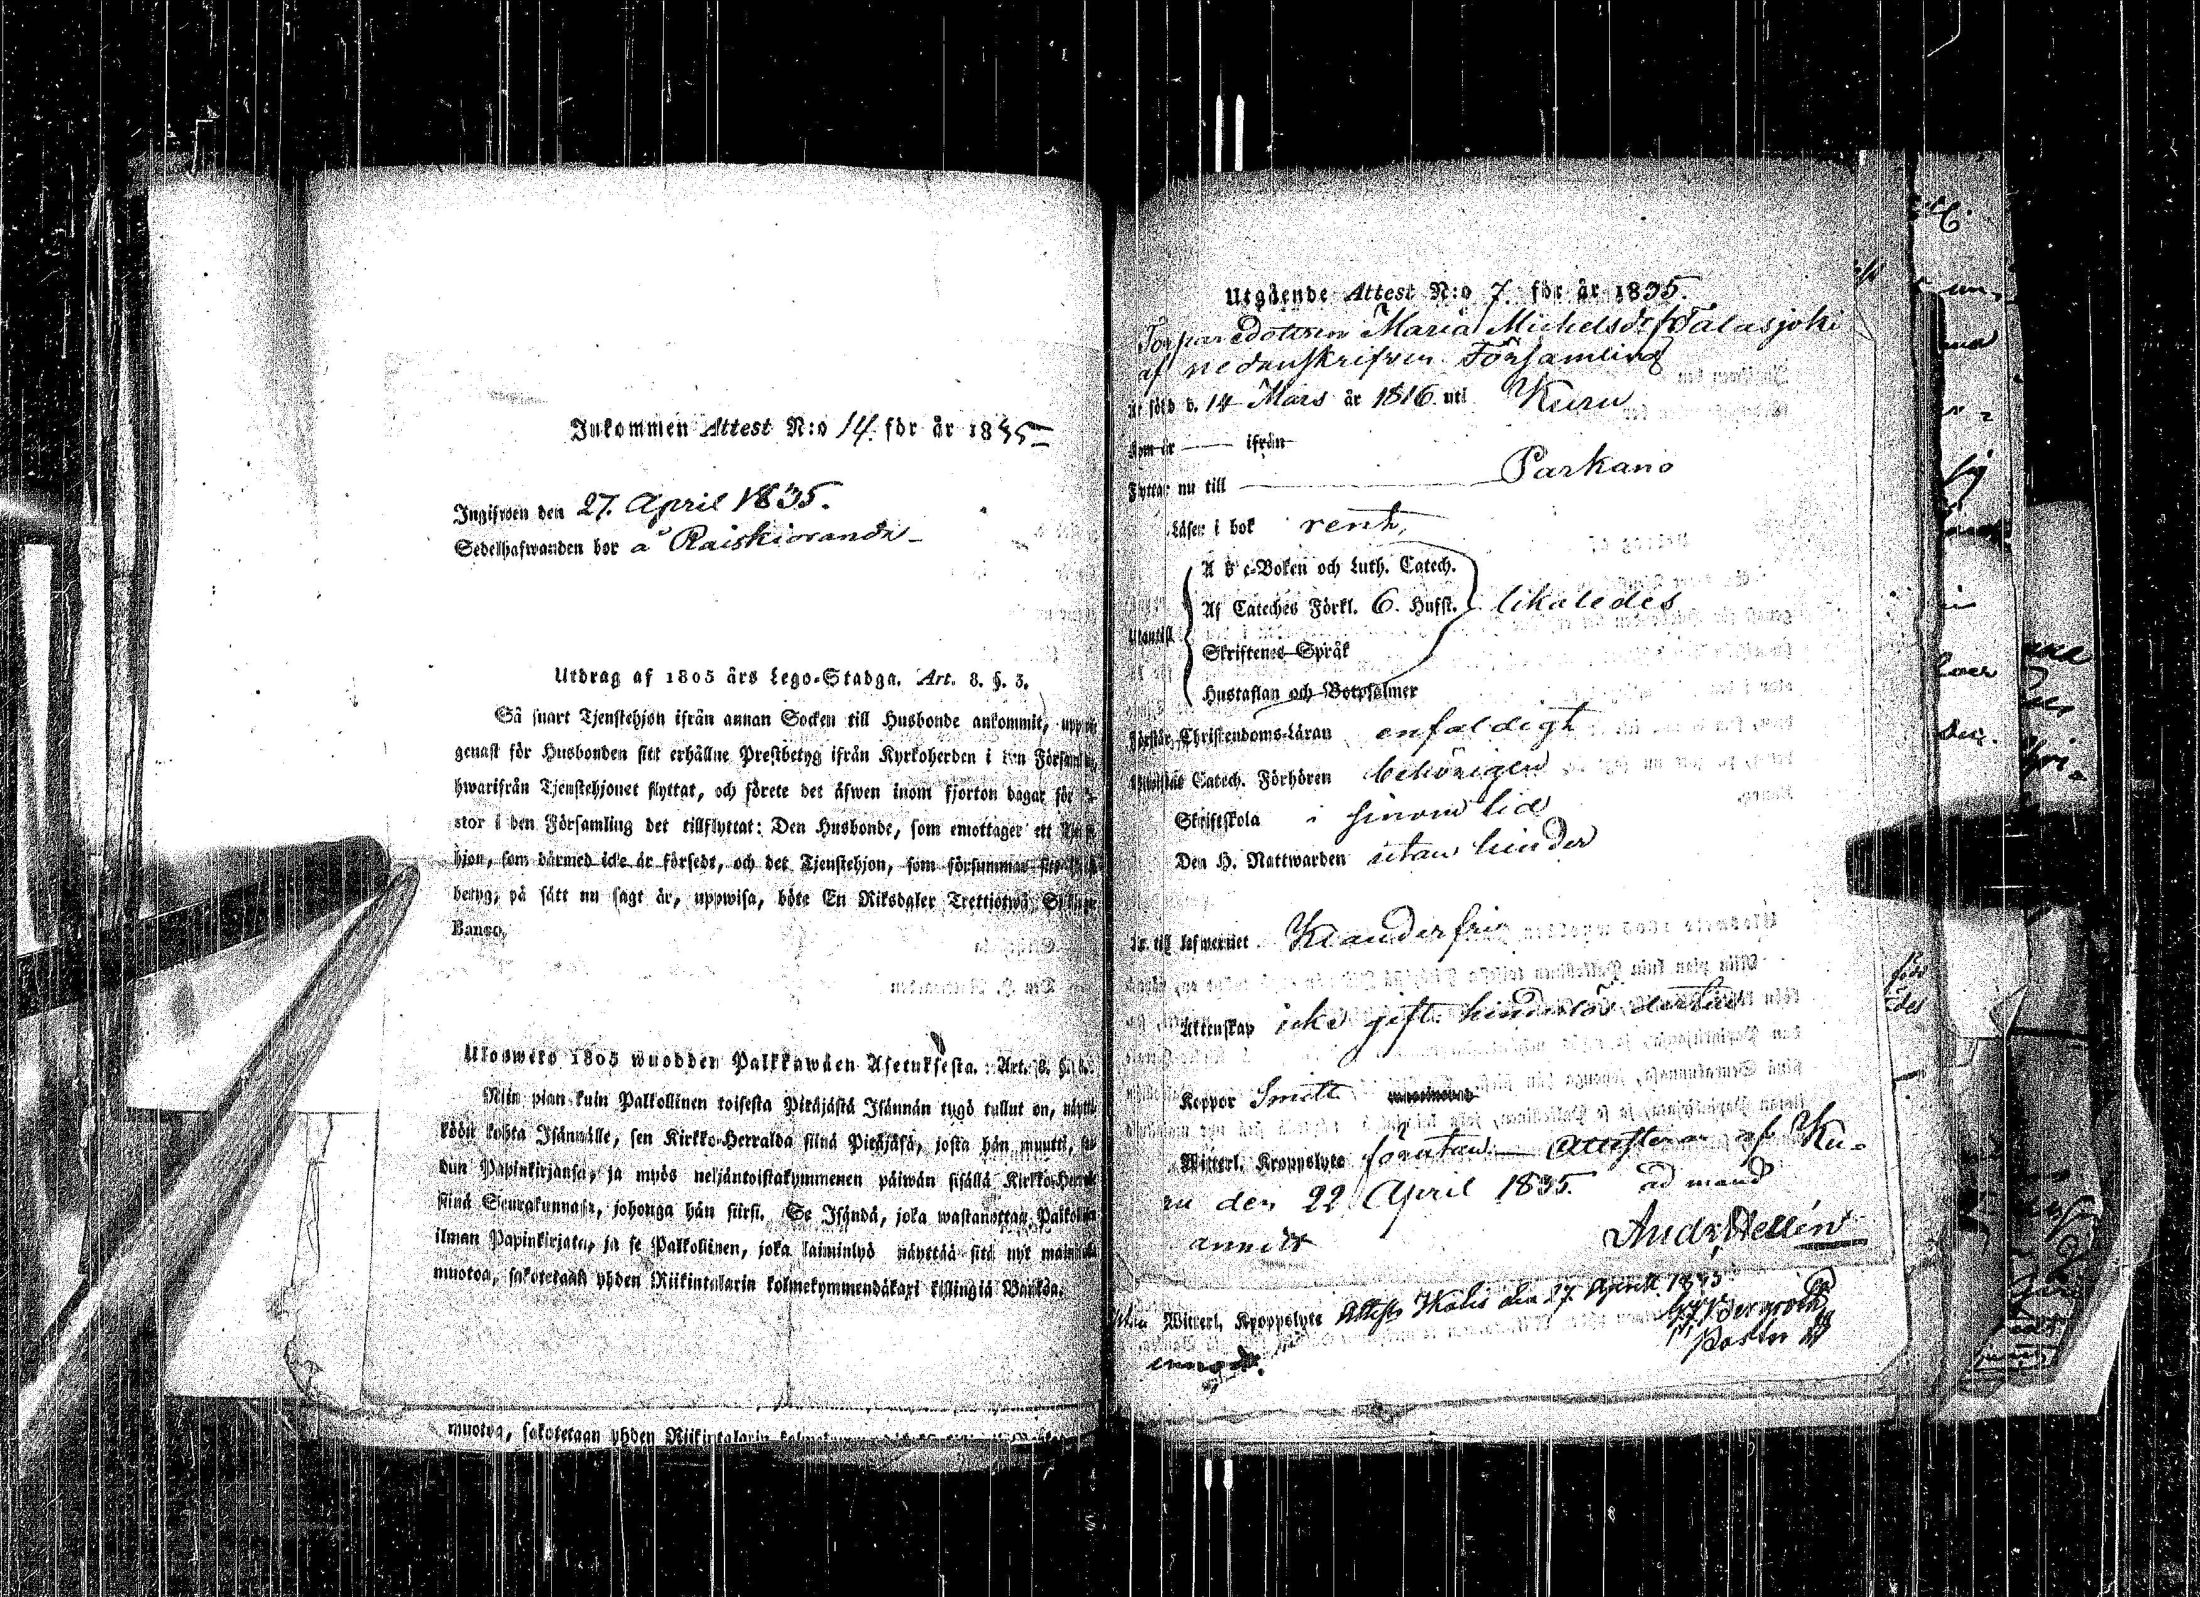 Inkommen Attest N:o 14. för år 1835
Ingifwen den 27. April 1835.
Sedelhafwanden bor å Raiskioranda
Utdrag af 1805 års Lego-Stadga. Art. 8. §. 3.
Så snart Tjenstehjon ifrån annan Socken till Husbonde ankommit,
genast för Husbonden sitt erhållne Prestbetyg ifrån Kyrkoherden i den
hwarifrån Tjenstehjonet flyttat, och förete det äfwen inom fjorton dagar för
stor i den Församling det tillflyttat: Den Husbonde, som emottager ett
hjon, som därmed icke är försedt, och det Tjenstehjon, som försummar
betyg, på sätt nu sagt är, uppwisa, böte En Riksdaler Trettiotwå
Banco.
Ulosweto 1805 wuodden Palkkawäen Asetuksesta. Art. 8. §. 3.
Niin pian kuin Palkollinen toisesta Pitäjästä Isännän tygö tullut on,
köön kohta Isännälle, sen Kirkko-Herralda siinä Pitäjäsä, josta hän muutti,
dun Papinkirjansa, ja myös neljäntoistakymmenen päiwän sisällä
siinä Seurakunnasa, johonga hän siirsi. Se Isändä, joka wastanottaa
ilman Papinkirjata, ja se Palkollinen, joka laiminlyö näyttää sitä nyt
muotoa, sakotetaan yhden Riikintalarin kolmekymmendäkaxi killingiä Bankoa.
muotoa, sakotetaan yhden Riikintalarin
Utgående Attest N:o 7. för år 1835.
Torparedotteren Maria Michelsdr Talasjoki
af nedanskrifven Församling
är född d. 14 Mars år 1816. uti Kuru
kom år ifrån
Flyttar nu till Parkano
Läser i bok rent,
A b c-Boken och Luth. Catech.
Af Cateches Förkl. 6. Hufst. likaledes
Utantill
Skriftenes Språk
Hustaflan och Botpsalmer
Förstår Christendoms-Läran enfaldigt
Catech. Förhören behörigen
Skriftskola i sinom tid
Den H. Nattwarden utan hinder
Är till lefwernet Klanderfri
Äktenskap icke gift. hinderlös
Koppor Smitt
Witterl. Kroppslyte förutan Attesterar af Ku-
ru den 22 April 1835. ad mand
Andr Hellén
Witterl. Kroppslyte den 27 April 1835